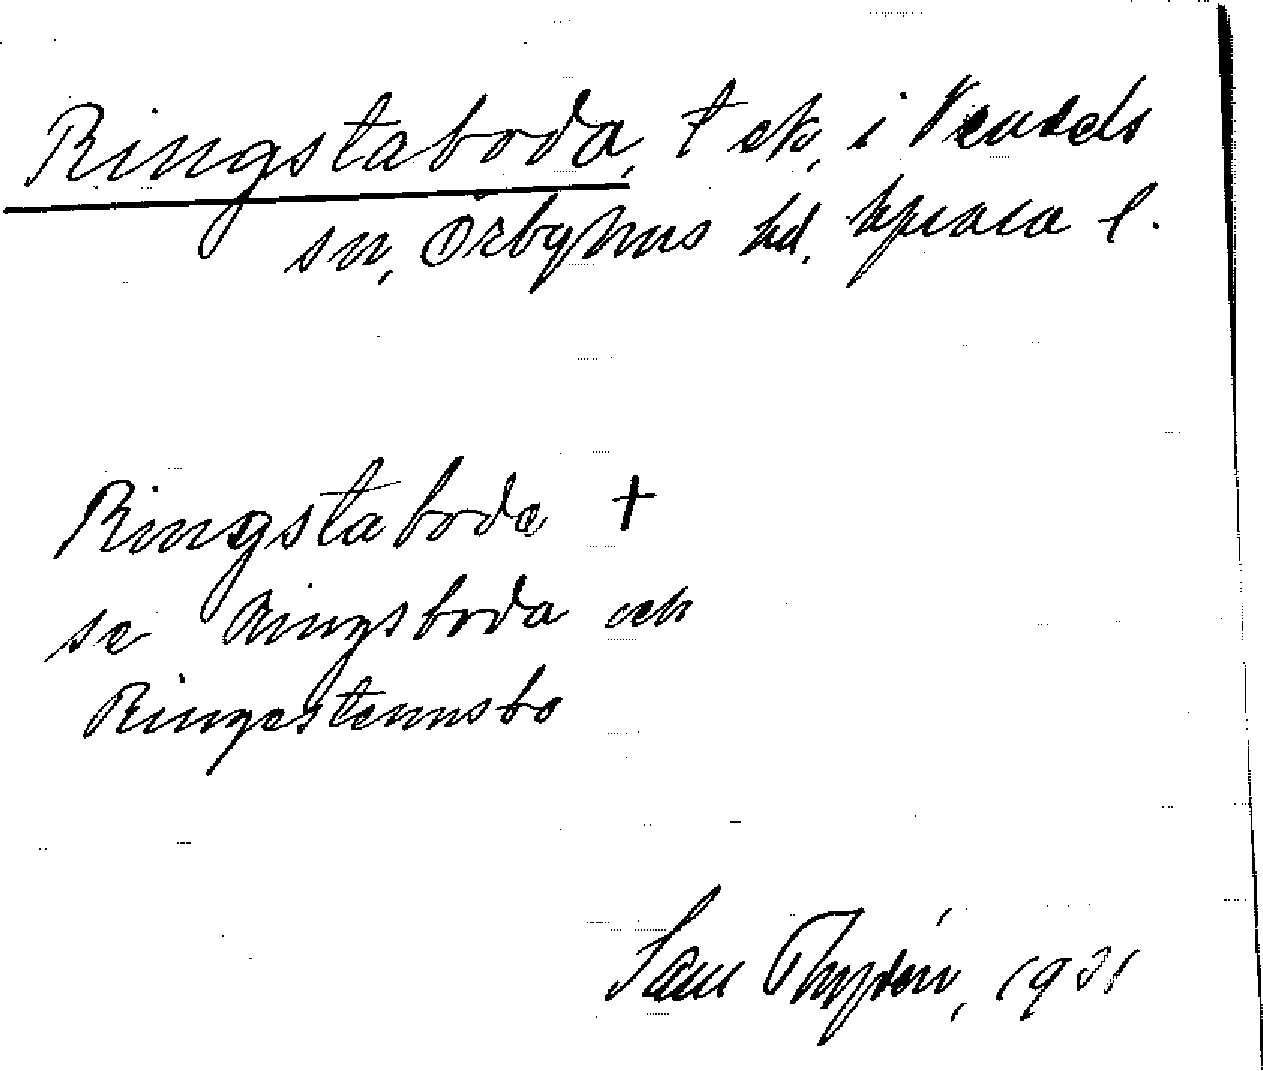 Ringstaboda, † ek, i Vendels
sn, Örbyhus hd, Uppsala l.
Ringstaboda †
se Ringsboda och
Ringestennsbo
Sam Thyden, 1931